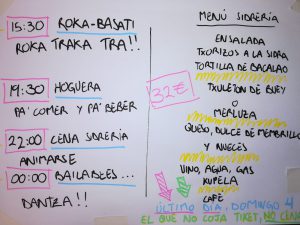 15:30 ROKA-BASATI
ROKA TRAKA TRA!!
19:30 HOGUERA
PA' COMER Y PA' BEBER
22:00 CENA SIDRERIA
ANIMARSE
00:00 BAILABLES...
DANTZA!!
32€
MENÚ SIDRERÍA
ENSALADA
TXORIZOS A LA SIDRA
TORTILLA DE BACALAO
TXULETON DE BUEY
Ó
MERLUZA
QUESO, DULCE DE MEMBRILLO
Y NUECES
VINO, AGUA, GAS
KUPELA
CAFÉ
ÚLTIMO DÍA, DOMINGO 4
EL QUE NO COJA TIKET, NO CENA